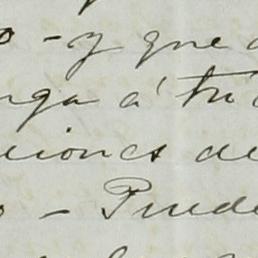 o - y que
nga á tu
ciones de
o - Prude